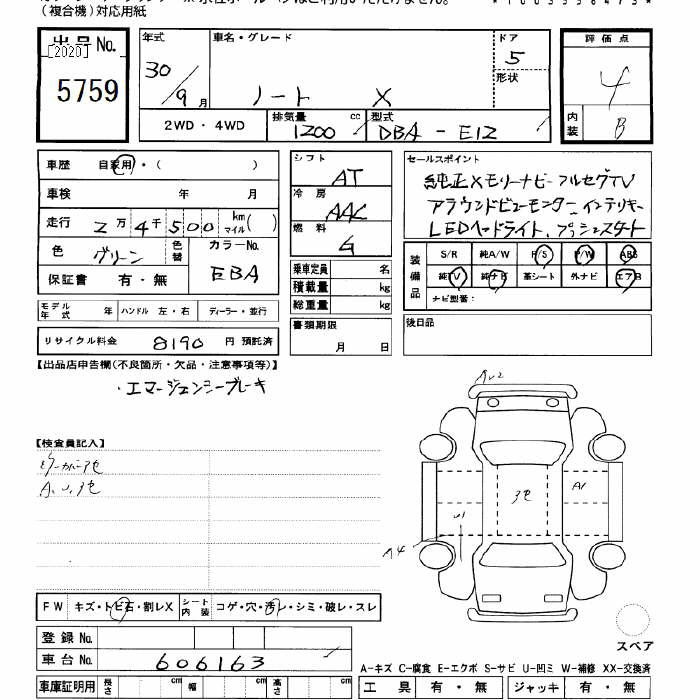 （複合機）対応用紙
出品No.
[2020]
5759
年式 車名・グレード ドア 評価点
30/9月 ノート X 5 4
形状
2WD・4WD 排気量 1200 cc 型式 DBA-E12 内装 B
車歴 自家用・( )
車検 年 月
走行 2万4千500 km マイル( )
色 グリーン 色替 カラーNo. EBA
保証書 有・無
モデル年式 年 ハンドル 左・右 ディーラー・並行
リサイクル料金 8190 円 預託済
シフト AT
冷房 AAC
燃料 G
乗車定員 名
積載量 kg
総重量 kg
書類期限
月 日
セールスポイント
純正メモリーナビ フルセグTV
アラウンドビューモニター インテリキー
LEDヘッドライト、プッシュスタート
装備品 S/R 純A/W P/S P/W ABS
純TV 純ナビ 革シート 外ナビ エアB
ナビ型番：
後日品
【出品店申告欄(不良箇所・欠品・注意事項等)】
・エマージェンシーブレーキ
【検査員記入】
A、U、3セ
AU2
3セ
A1
U1
A4
FW キズ・トビ石・割レX シート内装 コゲ・穴・汚レ・シミ・破レ・スレ
スペア
登録No.
車台No. 606163
車庫証明用 長さ cm 幅 cm 高さ cm
A-キズ C-腐食 E-エクボ S-サビ U-凹ミ W-補修 XX-交換済
工具 有・無 ジャッキ 有・無